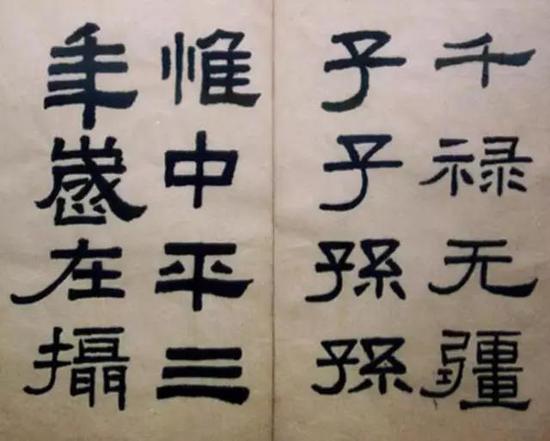 千禄无疆
子子孫孫
惟中平三
年歳在攝